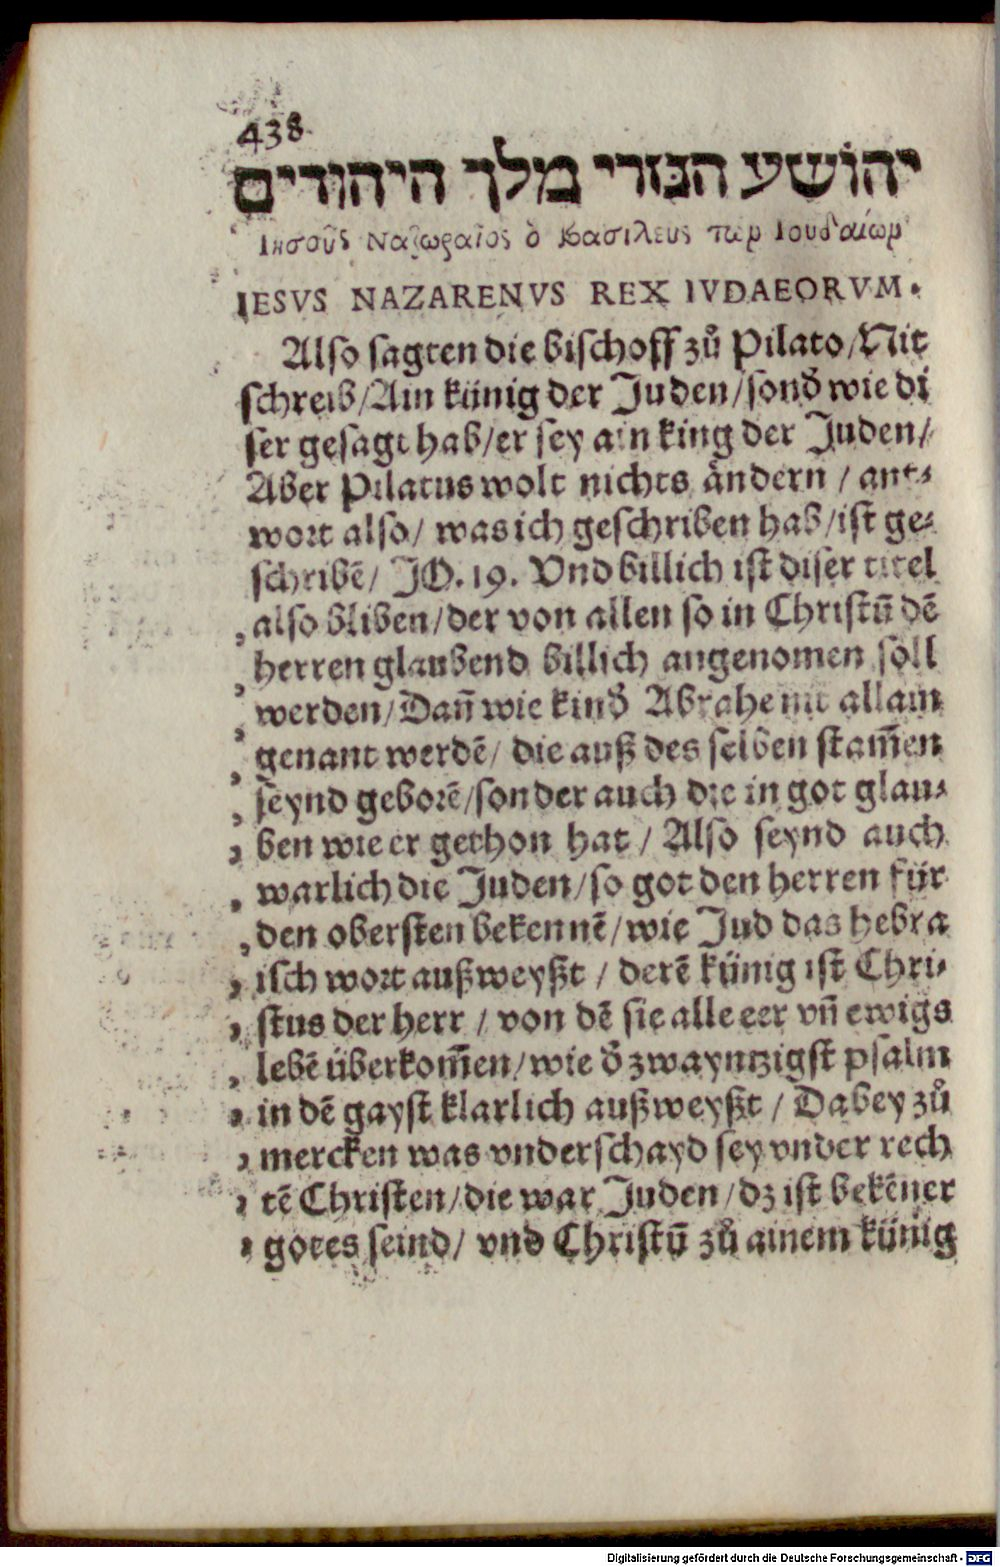 438
יהושע הנזרי מלך היהודים
Ιησοῦς Ναζωραῖος ὁ βασιλευς τωρ Ιουδαίωρ
IESVS NAZARENVS REX IVDAEORVM.
Also sagten die bischoff zů Pilato/Nit
schreib/Ain künig der Juden/sonð wie di
ser gesagt hab/er sey ain king der Juden/
Aber Pilatus wolt nichts ändern / ant⸗
wort also/ was ich geschriben hab/ist ge⸗
schribē/ JO. 19. Vnd billich ist diser titel
, also bliben/der von allen so in Christū dē
, herren glaubend billich angenomen soll
, werden/Dañ wie kinð Abrahe nit allain
, genant werdē/ die auß des selben stam̄en
, seynd geborē/sonder auch die in got glau⸗
, ben wie er gethon hat / Also seynd auch
, warlich die Juden/so got den herren für
, den obersten bekennē/wie Jud das hebra
, isch wort außweyßt / derē künig ist Chri⸗
, stus der herr / von dē sie alle eer vñ ewigs
, lebē überkom̄en/wie ð zwayntzigst psalm
, in dē gayst klarlich außweyßt / Dabey zů
, mercken was vnderschayd sey vnder rech
, tē Christen/die war Juden/dz ist bekēner
, gotes seind/ vnd Christū zů ainem künig
Digitalisierung gefördert durch die Deutsche Forschungsgemeinschaft - DFG